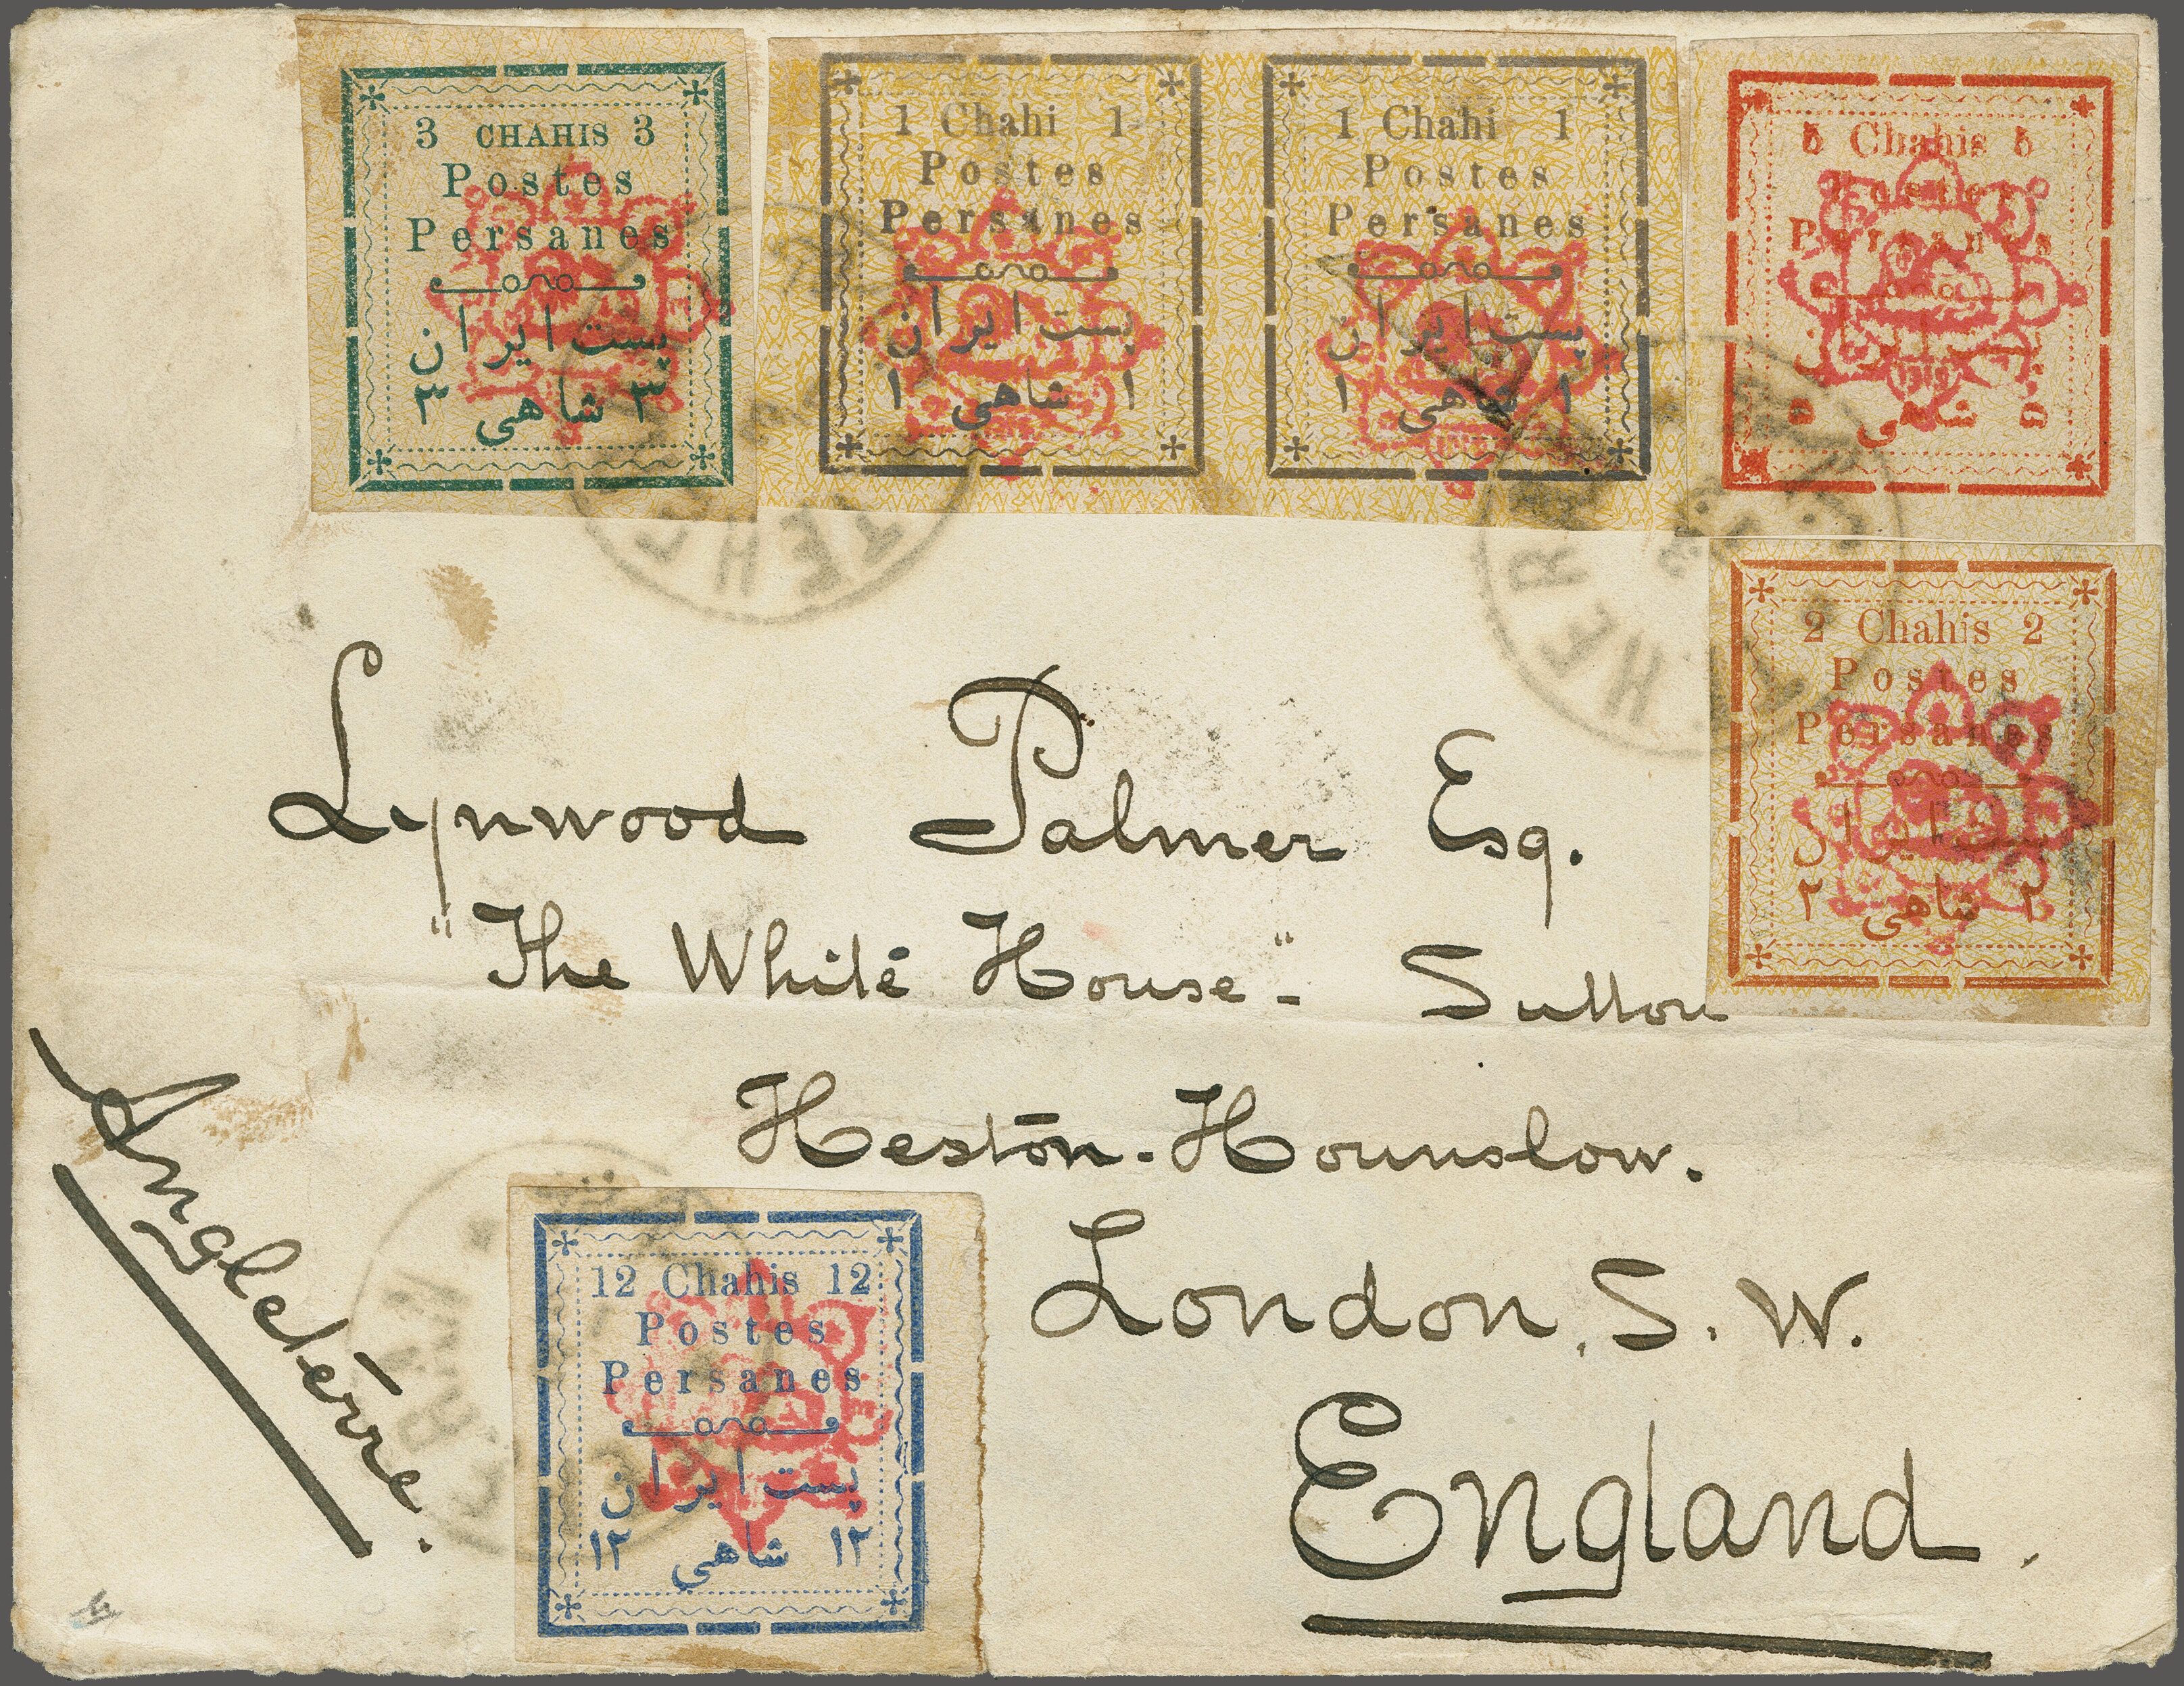 3 CHAHIS 3
Postes
Persanes
پست ایران
۳ شاهی ۳
1 Chahi 1
Postes
Persanes
پست ایران
۱ شاهی ۱
1 Chahi 1
Postes
Persanes
پست ایران
۱ شاهی ۱
5 Chahis 5
Postes
Persanes
پست ایران
۵ شاهی ۵
TEHERAN
2 Chahis 2
Postes
Persanes
پست ایران
۲ شاهی ۲
Lynwood Palmer Esq.
"The White House"- Sutton
Heston-Hounslow.
London. S. W.
England.
Angleterre.
12 Chahis 12
Postes
Persanes
پست ایران
۱۲ شاهی ۱۲